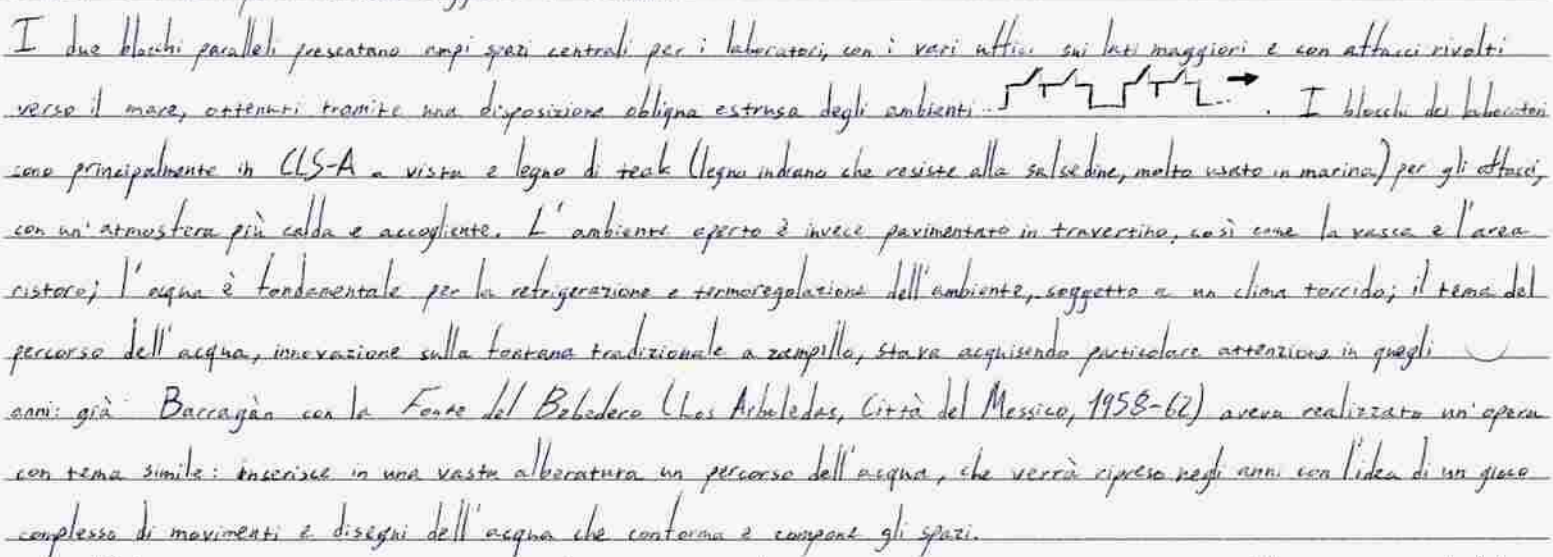 I due blocchi paralleli presentano ampi spazi centrali per i laboratori, con i vari uffici sui lati maggiori e con affacci rivolti
verso il mare, ottenuti tramite una disposizione obliqua estrusa degli ambienti. I blocchi dei laboratori
sono principalmente in CLS-A a vista e legno di teak (legno indiano che resiste alla salsedine, molto usato in marina) per gli affacci,
con un'atmosfera più calda e accogliente. L'ambiente aperto è invece pavimentato in travertino, così come la vasca e l'area
ristoro; l'acqua è fondamentale per la refrigerazione e termoregolazione dell'ambiente, soggetto a un clima torrido; il tema del
percorso dell'acqua, innovazione sulla fontana tradizionale a zampillo, stava acquisendo particolare attenzione in quegli
anni: già Barragàn con la Fonte del Bebedero (Los Arboledas, Città del Messico, 1958-62) aveva realizzato un'opera
con tema simile: inserisce in una vasta alberatura un percorso dell'acqua, che verrà ripreso negli anni con l'idea di un gioco
complesso di movimenti e disegni dell'acqua che conforma e compone gli spazi.